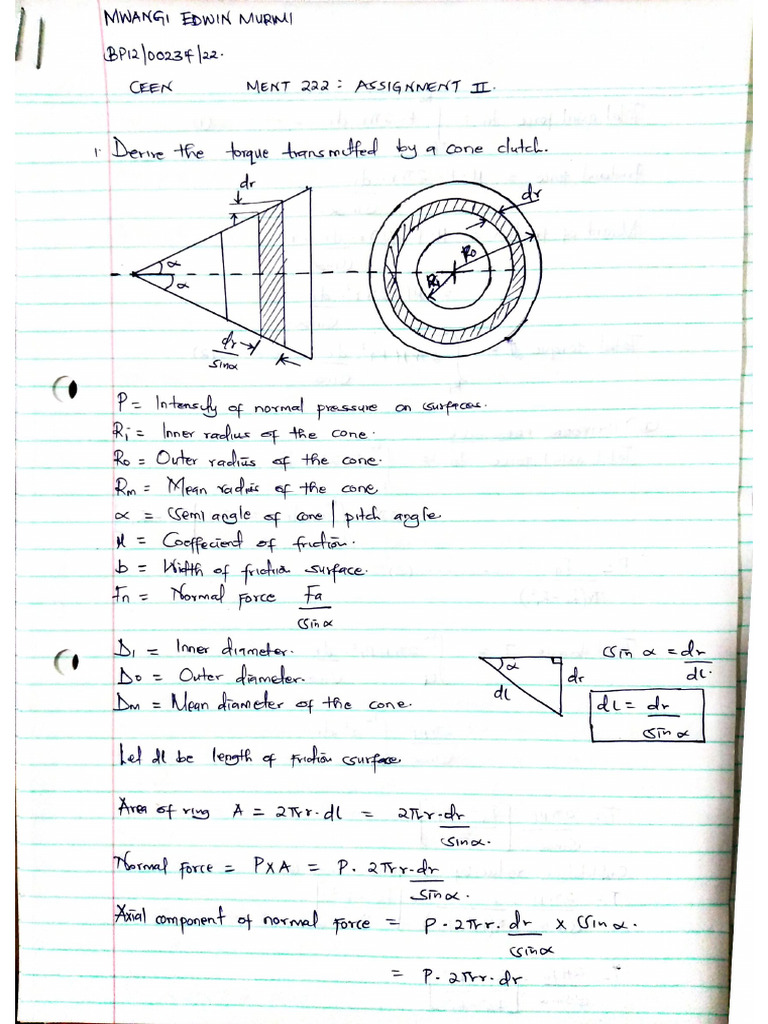 11
MWANGI EDWIN MURIMI
BP12/00234/22.
CEEN MENT 222: ASSIGNMENT II.
1. Derive the torque transmitted by a cone clutch.
dr
dr
α
α
Ro
Ri
dr
sinα
P = Intensity of normal pressure on surfaces.
Ri = Inner radius of the cone.
Ro = Outer radius of the cone.
Rm = Mean radius of the cone
α = Semi angle of cone | pitch angle.
μ = Coeffecient of friction.
b = Width of friction surface.
Fn = Normal Force Fa
sinα
Di = Inner diameter.
Do = Outer diameter.
Dm = Mean diameter of the cone.
α
dr
dl
sin α = dr
dl.
dL = dr
sinα
Let dl be length of friction surface.
Area of ring A = 2πr.dl = 2πr.dr
sinα.
Normal Force = P×A = P. 2πr.dr
sinα.
Axial component of normal force = P. 2πr. dr × sinα.
sinα
= P. 2πr.dr